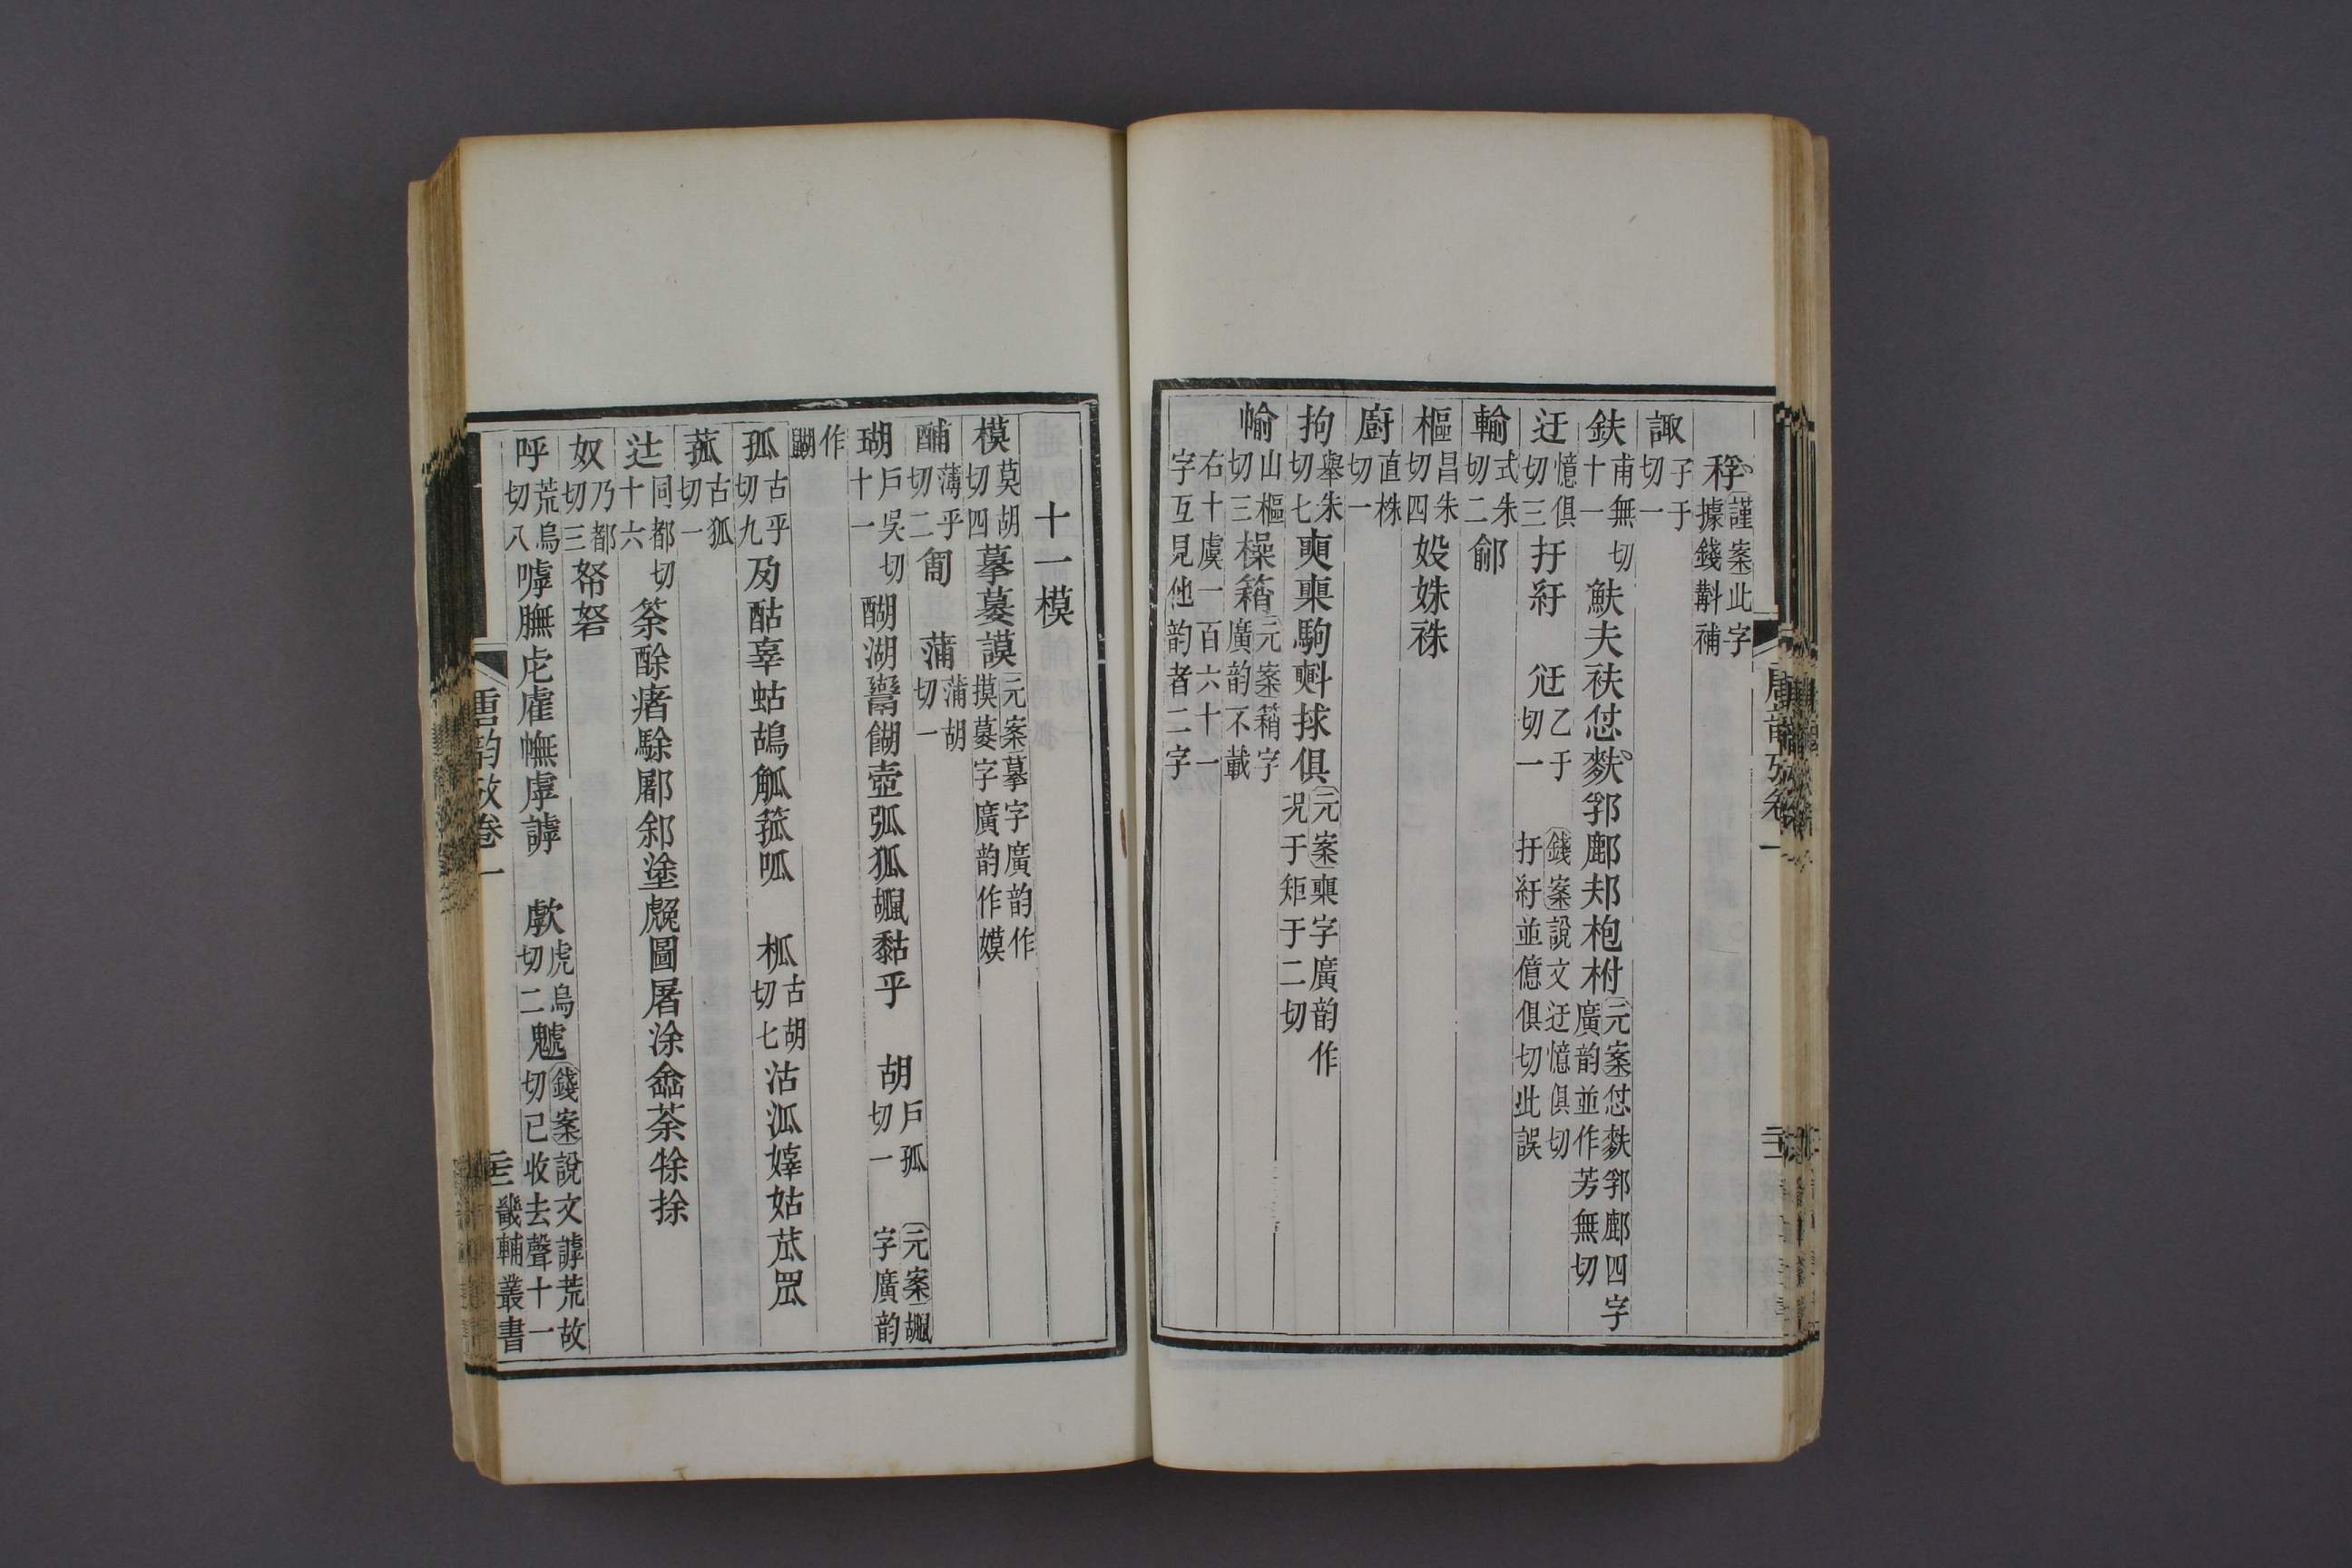 稃謹案此字據錢斠補
諏子于切一
鈇甫無切十一鮇夫衭怤麩郛鄜邞枹柎元案怤麩郛鄜四字廣韵並作芳無切
迂憶俱切三扜紆 尪乙于切一 錢案說文迂憶俱切扜紆並億俱切此誤
輸式朱切二鄃
樞昌朱切四姝袾
廚直株切一
拘舉朱切七駒㪺捄俱元案字廣韵作况于矩于二切
㡏山樞切三橾䈰元案䈰字廣韵不載
右十虞一百六十一字互見他韵者二字
唐韵攷卷一
十一模
模莫胡切四摹㷬謨元案摹字廣韵作摸㷬字廣韵作嫫
酺薄乎切二匍 蒲蒲胡切一
瑚戶吳切十一醐湖鬻餬壺弧狐黏乎 胡戶孤切一 元案字廣韵
作
孤古乎切九夃酤辜蛄鴣觚箛呱 柧古胡切七沽泒嫴姑苽罛
菰古狐切一
辻同都切十六筡酴瘏駼鄌鄃塗圖屠涂嵞荼捈
奴乃都切三帑砮
呼荒烏切八嘑膴虍雐幠虖謼 歑虎烏切二魖錢案說文謼荒故切已收去聲十一
唐韵攷卷一
畿輔叢書